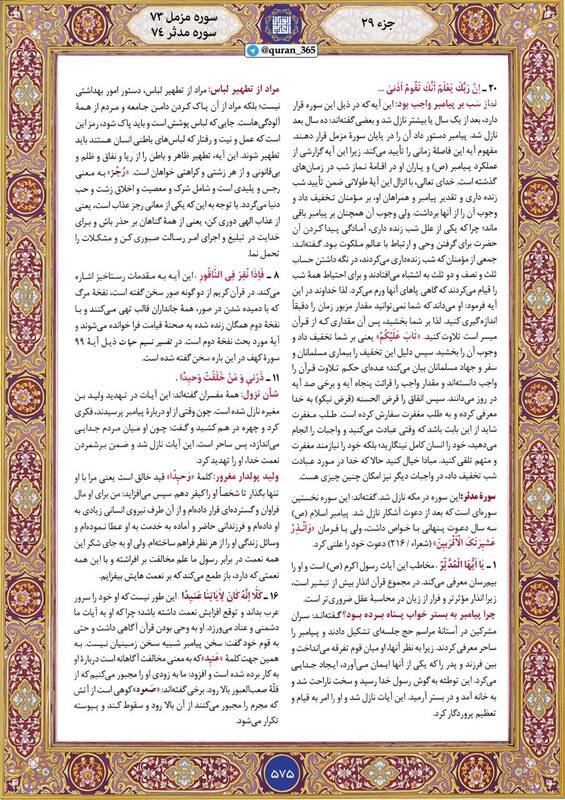 جزء ۲۹
سوره مزمل ۷۳
سوره مدثر ۷۴
@quran_365
۲۰ ـ إِنَّ رَبَّكَ يَعْلَمُ أَنَّكَ تَقُومُ أَدْنىٰ ...
نماز شب بر پیامبر واجب بود: این آیه که در ذیل این سوره قرار
دارد، بعد از یک سال یا بیشتر نازل شد و بعضی گفته‌اند: ده سال بعد
نازل شد. پیامبر دستور داد آن را در پایان سورهٔ مزمل قرار دهند.
مفهوم آیه این فاصلهٔ زمانی را تأیید می‌کند. زیرا این آیه گزارشی از
عملکرد پیامبر (ص) و یاران او در اقامهٔ نماز شب در زمان‌های
گذشته است. خدای تعالی، با انزال این آیهٔ طولانی ضمن تأیید شب
زنده داری و تقدیر پیامبر و همراهان او، بر مؤمنان تخفیف داد و
وجوب آن را از آنها برداشت. ولی وجوب آن همچنان بر پیامبر باقی
ماند؛ چرا که یکی از علل شب زنده داری، آمادگی پیدا کردن آن
حضرت برای گرفتن وحی و ارتباط با عالم ملکوت بود. گفته‌اند:
جمعی از مؤمنان که شب زنده‌داری می‌کردند، در نگه داشتن حساب
ثلث و نصف و دو ثلث به اشتباه می‌افتادند و برای احتیاط همهٔ شب
را قیام می‌کردند که گاهی پاهای آنها ورم می‌کرد. لذا خداوند در این
آیه فرمود: او می‌داند که شما نمی‌توانید مقدار مزبور زمان را دقیقاً
اندازه‌گیری کنید. لذا بر شما بخشید، پس آن مقداری که از قرآن
میسر است تلاوت کنید. «تَابَ عَلَيْكُمْ» یعنی بر شما تخفیف داد و
وجوب آن را بخشید. سپس دلیل این تخفیف را بیماری مسلمانان و
سفر و جهاد مسلمانان بیان می‌کند؛ عده‌ای حکم تلاوت قرآن را
واجب دانسته‌اند و مقدار واجب را قرائت پنجاه آیه و برخی صد آیه
در روز می‌دانند. سپس انفاق را قرض الحسنه (قرض نیکو) به خدا
معرفی کرده و به طلب مغفرت سفارش کرده است. طلب مغفرت
شاید از این بابت باشد که وقتی عبادت می‌کنید و واجبات را انجام
می‌دهید، خود را انسان کامل نینگارید؛ بلکه خود را نیازمند مغفرت
و متهم تلقی کنید. مبادا خیال کنید حالا که خدا در مورد عبادت
شب تخفیف داد، در واجبات دیگر نیز امکان چنین چیزی هست.
سورهٔ مدثر: این سوره در مکه نازل شد. گفته‌اند: این سوره نخستین
سوره‌ای است که بعد از دعوت آشکار نازل شد. پیامبر اسلام (ص)
سه سال دعوت پنهانی با خواص داشت، ولی با فرمان «وَأَنْذِرْ
عَشِيرَتَكَ الْأَقْرَبِينَ» (شعراء / ۲۱۶) دعوت خود را علنی کرد.
۱ ـ يَا أَيُّهَا الْمُدَّثِّرُ . مخاطب این آیات رسول اکرم (ص) است و او را
بیم‌رسان معرفی می‌کند. در مجموع قرآن انذار بیش از تبشیر است،
زیرا انذار مؤثرتر و فرار از زیان در محاسبهٔ عقل ضروری‌تر است.
چرا پیامبر به بستر خواب پناه برده بود؟ گفته‌اند: سران
مشرکین در آستانهٔ مراسم حج جلسه‌ای تشکیل دادند و پیامبر را
ساحر معرفی کردند. زیرا به نظر آنها، او میان قوم تفرقه می‌انداخت و
بین فرزند و پدر را که یکی از آنها ایمان می‌آورد، ایجاد جدایی
می‌کرد. این توطئه به گوش رسول خدا رسید و سخت ناراحت شد و
به خانه آمد و در بستر آرمید. این آیات نازل شد و او را امر به قیام و
تعظیم پروردگار کرد.
مراد از تطهیر لباس: مراد از تطهیر لباس، دستور امور بهداشتی
نیست؛ بلکه مراد از آن پاک کردن دامن جامعه و مردم از همهٔ
آلودگی‌هاست. جایی که لباس پوشش است و باید پاک شود، رمز این
است که عمل و نیت و رفتار که لباس‌های باطنی انسان هستند باید
تطهیر شوند. این آیه، تطهیر ظاهر و باطن را از ریا و نفاق و ظلم و
بی‌قانونی و از هر زشتی و کراهتی خواهان است. «رُجْزَ» به معنی
رجس و پلیدی است و شامل شرک و معصیت و اخلاق زشت و حب
دنیا می‌گردد. با توجه به این که یکی از معانی رجز عذاب است، یعنی
از عذاب الهی دوری کن، یعنی از همهٔ گناهان بر حذر باش و برای
خدایت در تبلیغ و اجرای امر رسالت صبوری کن و مشکلات را
تحمل نما.
۸ ـ فَإِذَا نُقِرَ فِي النَّاقُورِ . این آیه به مقدمات رستاخیز اشاره
می‌کند. در قرآن کریم از دو گونه صور سخن گفته است، نفخهٔ مرگ
که با دمیده شدن در صور، همهٔ جانداران قالب تهی می‌کنند و با
نفخهٔ دوم همگان زنده شده به صحنهٔ قیامت فرا خوانده می‌شوند و
آیهٔ مورد بحث نفخهٔ دوم است. در تفسیر نسیم حیات ذیل آیهٔ ۹۹
سورهٔ کهف در این باره سخن گفته شده است.
۱۱ ـ ذَرْنِي وَ مَنْ خَلَقْتُ وَحِيدًا .
شأن نزول: همهٔ مفسران گفته‌اند: این آیات در تهدید ولید بن
مغیره نازل شده است. چون وقتی از او دربارهٔ پیامبر پرسیدند، فکری
کرد و چهره در هم کشید و گفت: چون او میان مردم جدایی
می‌اندازد، پس ساحر است. این آیات نازل شد و ضمن برشمردن
نعمت خدا، او را تهدید کرد.
ولید پولدار مغرور: کلمهٔ «وَحِيدًا» قید خالق است یعنی مرا با او
تنها بگذار تا شخصاً او را کیفر دهم. سپس می‌افزاید: من برای او مال
فراوان و گسترده‌ای قرار داده‌ام و از آن طرف نیروی انسانی زیادی به
او داده‌ام و فرزندانی حاضر و آماده به خدمت به او عطا نموده‌ام و
وسائل زندگی او را از هر نظر فراهم ساخته‌ام. ولی او به جای شکر این
همه نعمت در برابر رسول ما علم مخالفت بر افراشته و با این همه
نعمتی که دارد، باز طمع می‌کند که بر نعمت هایش بیفزایم.
۱۶ ـ كَلَّا إِنَّهُ كَانَ لِآيَاتِنَا عَنِيدًا . این طور نیست که او خود را سرور
عرب بداند و توقع افزایش نعمت داشته باشد؛ چرا که او به آیات ما
دشمنی و عناد می‌ورزد. او به وحی بودن قرآن آگاهی داشت و حتی
به قوم خود گفت: سخن پیامبر شبیه سخن زمینیان نیست. به
همین جهت کلمهٔ «عَنِيد» که به معنی مخالفت آگاهانه است دربارهٔ او
به کار برده شده است و افزود: ما به زودی او را مجبور می‌کنیم که از
قلهٔ صعب‌العبور بالا رود. برخی گفته‌اند: «صَعود» کوهی است از آتش
که مجرم را مجبور می‌کنند از آن بالا رود و سقوط کند و پیوسته
تکرار می‌شود.
۵۷۵